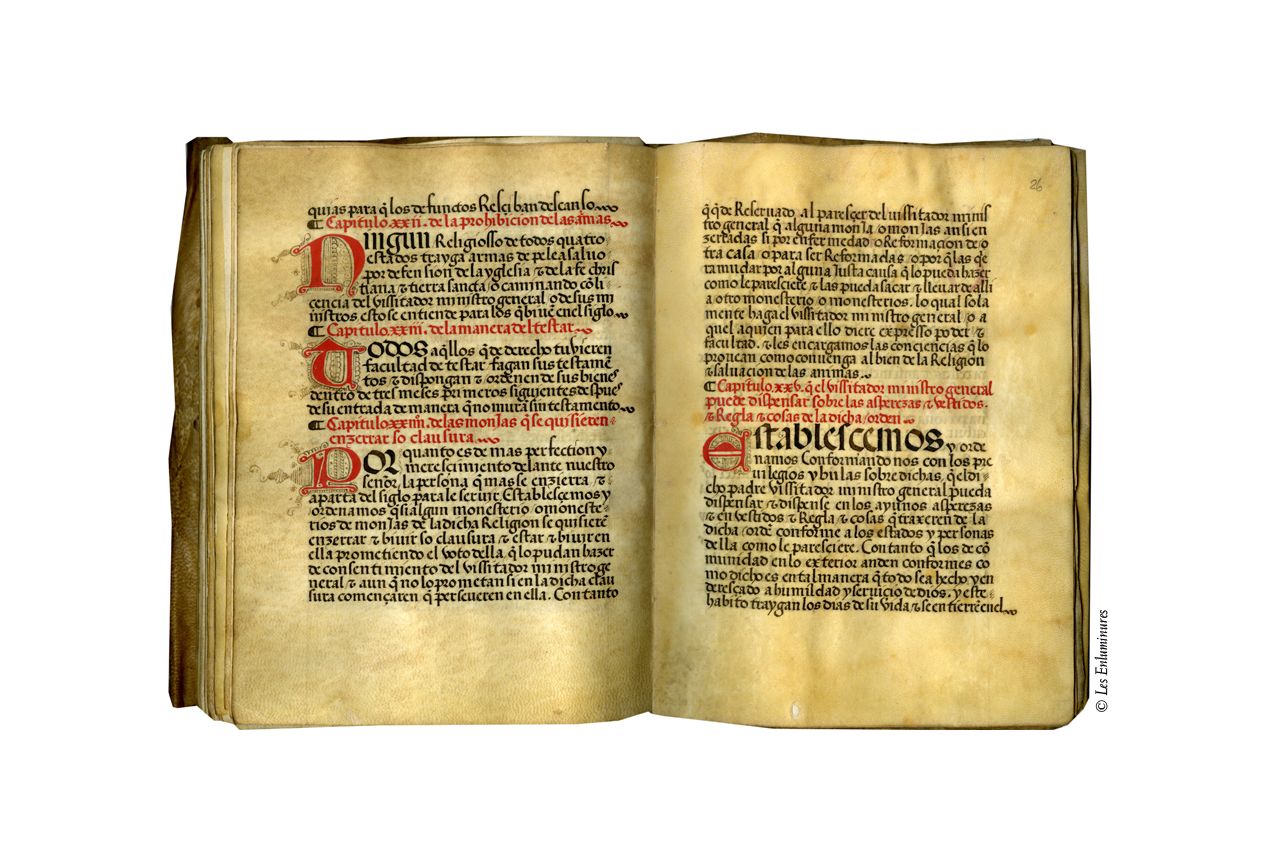 quias para q̃ los defunctos Resçiban descanso.
¶ Capitulo.xxij. de la prohibicion de las armas
Ningun Religiosso de todos quatro
estados trayga armas de pelea saluo
por defension de la yglesia ⁊ de la fe chris
tiana ⁊ tierra sancta o caminando cõ li
cencia del vissitador ministro general o de sus mi
nistros esto se entiende para los q̃ biuẽ en el siglo
¶ Capitulo.xxiij. de la manera del testar
Todos aq̃llos q̃ de derecho tuvieren
facultad de testar fagan sus testamẽ
tos ⁊ dispongan ⁊ ordenen de sus bienes
dentro de tres meses primeros siguientes despues
de su entrada de manera q̃ no mura sin testamento
¶ Capitulo xxiiij. de las monjas q̃ se quisieren
enzerrar so clausura
Por quanto es de mas perfection y
merescimiento delante nuestro
señor, la persona q̃ mas se enzierra, ⁊
aparta del siglo para le seruir. Establesçemos y
ordenamos q̃ si algun monesterio o moneste
rios de monjas de la dicha Religion se quisierẽ
enzerrar ⁊ biuir so clausura ⁊ estar ⁊ biuir en
ella prometiendo el voto della, q̃ lo pudan hazer
de consentimiento del vissitador ministro ge
neral ⁊ aun q̃ no lo prometan si en la dicha clau
sura començaren q̃ perseueren en ella. Con tanto
26
q̃ q̃de Reservado. al paresçer del vissitador minis
tro general q̃ alguna monja o monjas ansi en
zerradas si por enfermedad o Reformacion de o
tra casa o para ser Reformadas o por q̃ las q̃e
ra mudar por alguna justa causa q̃ lo pueda hazer
como le paresciere ⁊ las pueda sacar ⁊ lleuar de alli
a otro monesterio o monesterios. lo qual sola
mente haga el vissitador ministro general o a
quel a quien para ello diere expresso poder ⁊
facultad. ⁊ les encargamos las conciencias q̃ lo
prouean como convenga al bien de la Religion
⁊ saluacion de las animas.
¶ Capitulo.xxv. q̃ el vissitador ministro general
puede dispensar sobre las asperezas ⁊ vestidos.
⁊ Regla ⁊ cosas de la dicha orden
Establesçemos y orde
namos Conformando nos con los pre
uilegios y bulas sobre dichas, q̃ el di
cho padre vissitador ministro general pueda
dispensar ⁊ dispense en los ayunos asperezas
⁊ en vestidos ⁊ Regla ⁊ cosas q̃ traxeren de la
dicha ordẽ conforme a los estados y personas
della como le paresciere. Con tanto q̃ los de cõ
munidad en lo exterior anden conformes co
mo dicho es en tal manera q̃ todo sea hecho y en
deresçado a humildad y servicio de dios. y este
habito traygan los dias de su vida ⁊ se entierrẽ en el
© Les Enluminures